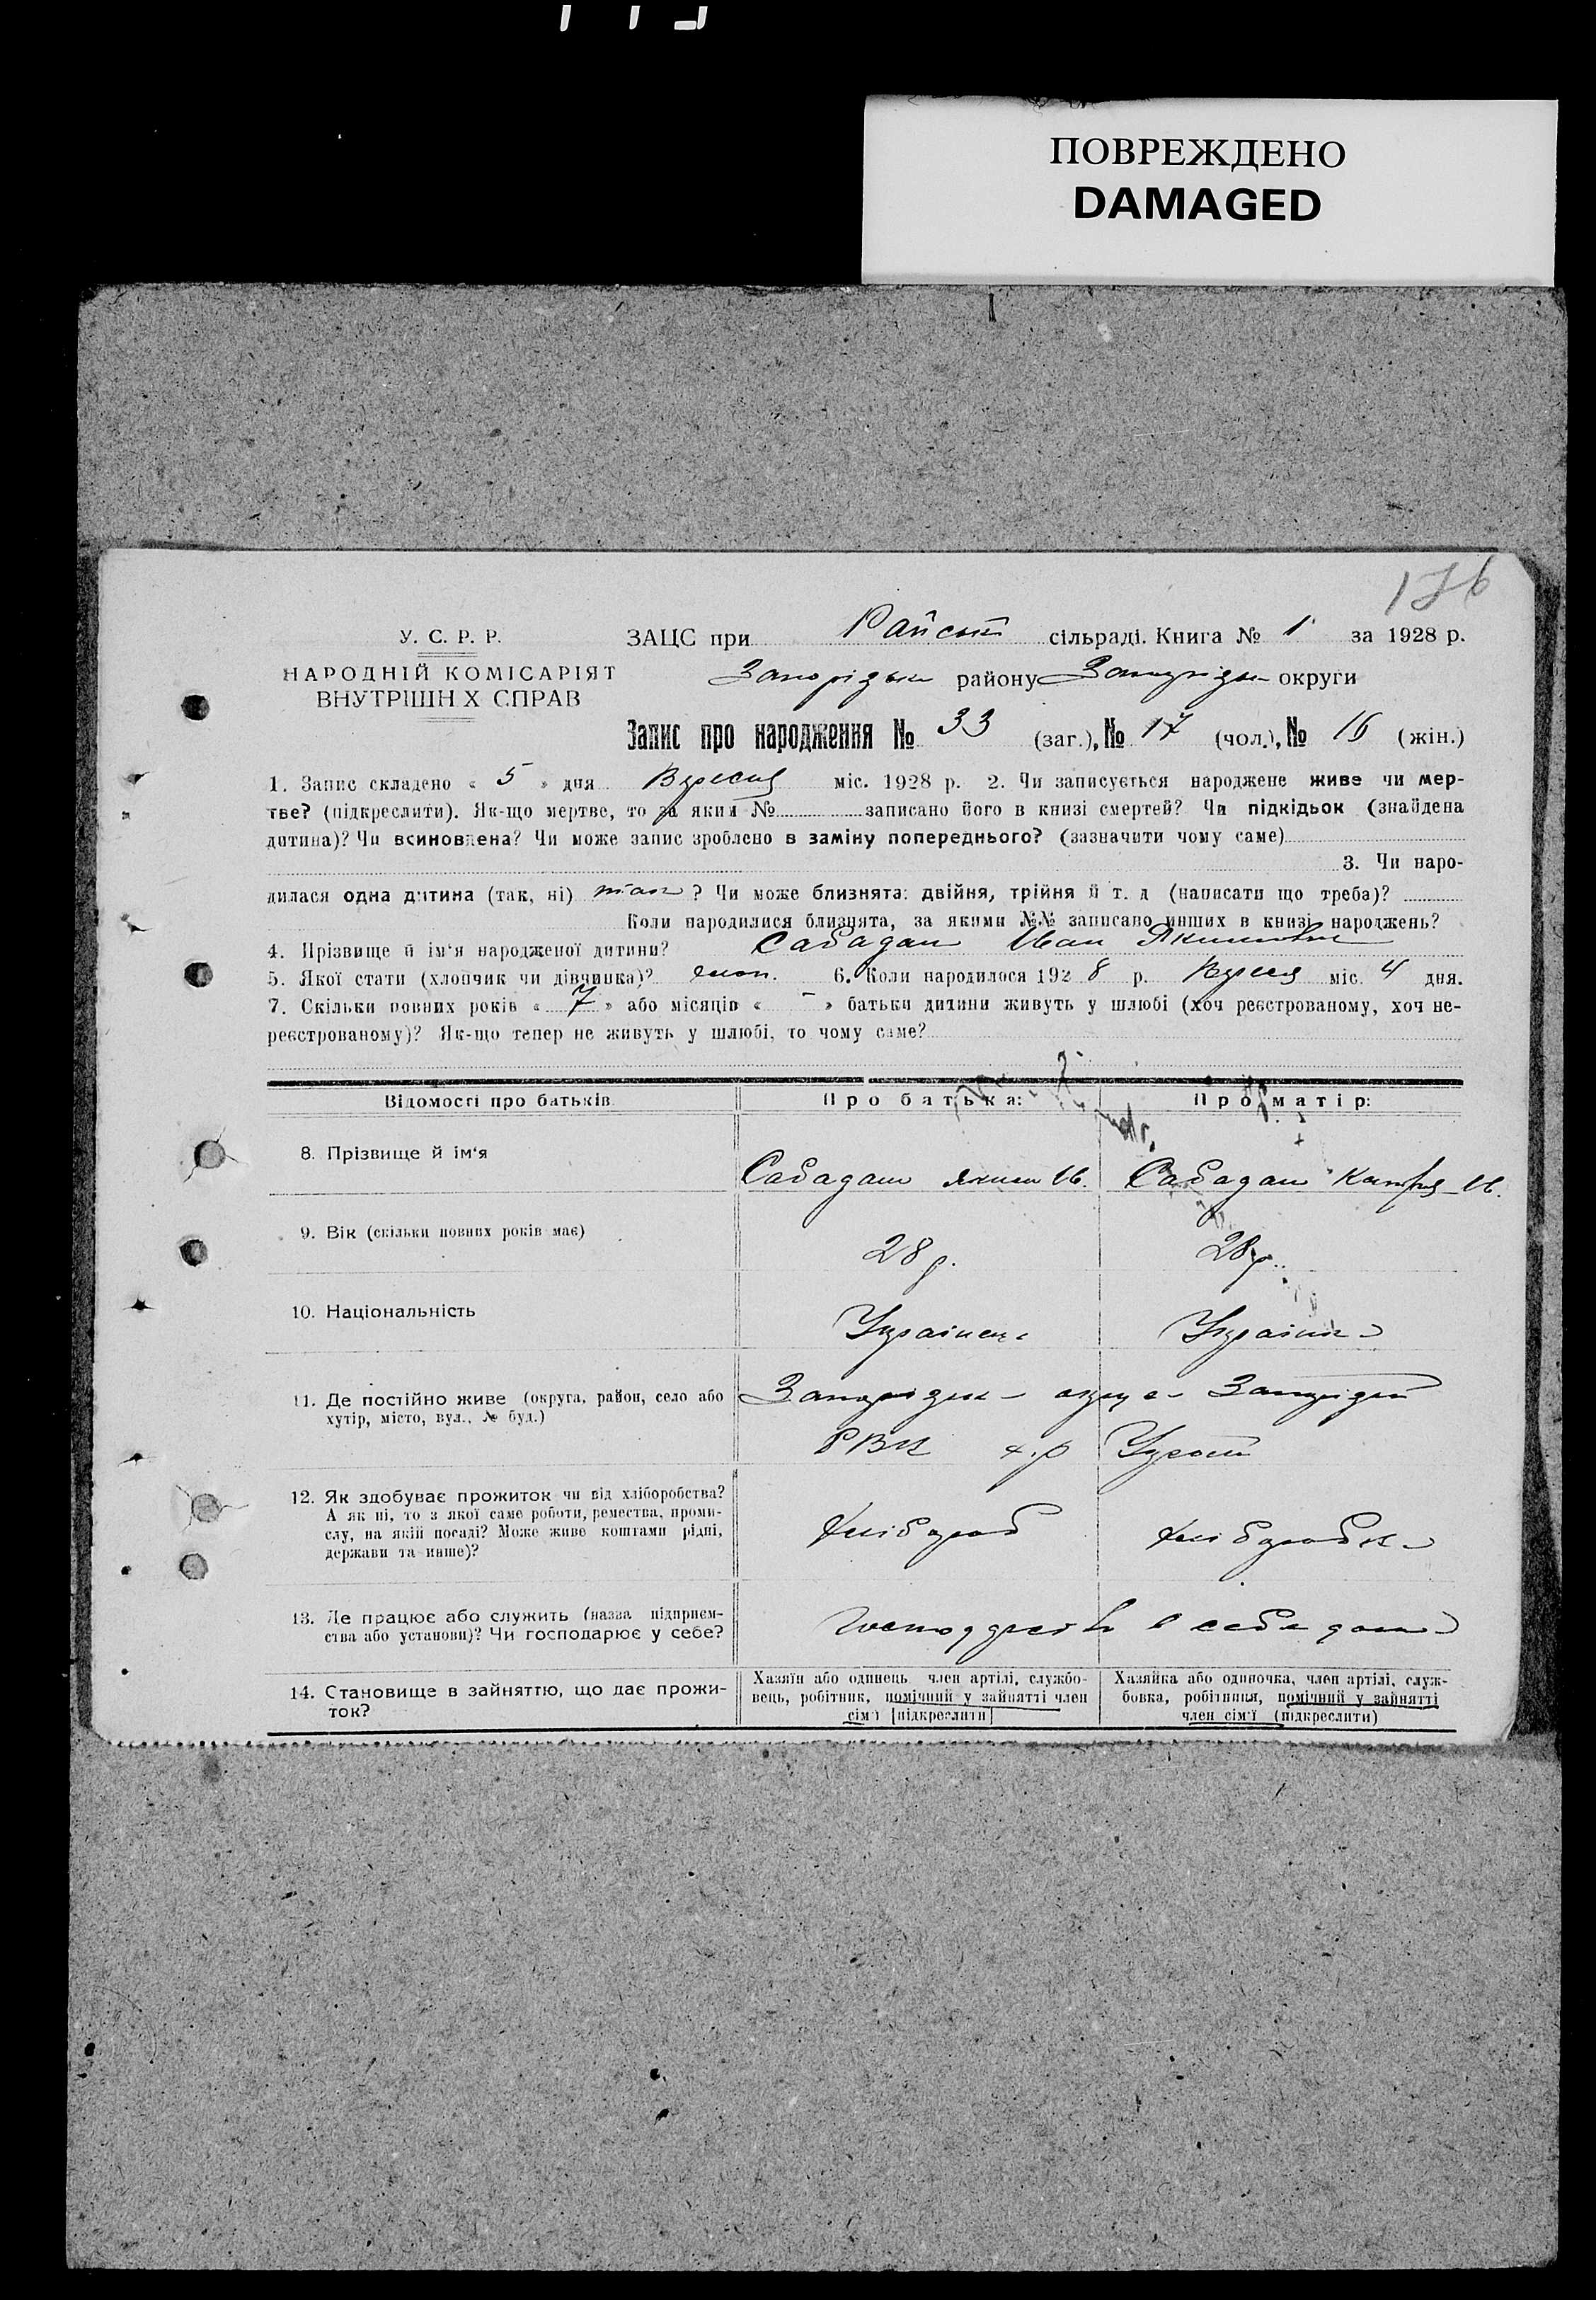 ПОВРЕЖДЕНО
DAMAGED
176
У. С. Р. Р.
НАРОДНІЙ КОМІСАРІЯТ
ВНУТРІШН Х СПРАВ
ЗАЦС при Райській сільраді. Книга № 1 за 1928 р.
Запорізьк району Запорізьк округи
Запис про народження № 33 (заг.), № 17 (чол.), № 16 (жін.)
1. Запис складено « 5 » дня Вересня міс. 1928 р. 2. Чи записується народжене живе чи мер-
тве? (підкреслити). Як-що мертве, то за яким № записано його в книзі смертей? Чи підкідьок (знайдена
дитина)? Чи всиновлена? Чи може запис зроблено в заміну попереднього? (зазначити чому саме)
3. Чи наро-
дилася одна дитина (так, ні) так ? Чи може близнята: двійня, трійня й т. д (написати що треба)?
Коли народилися близнята, за якими №№ записано инших в книзі народжень?
4. Прізвище й ім'я народженої дитини? Сабадаш Иван Якимович
5. Якої стати (хлопчик чи дівчинка)? хлоп. 6. Коли народилося 1928 р. Вересня міс. 4 дня.
7. Скільки повних років « 7 » або місяців « - » батьки дитини живуть у шлюбі (хоч реєстрованому, хоч не-
реєстрованому)? Як-що тепер не живуть у шлюбі, то чому саме?
Відомості про батьків
Про батька:
Про матір:
8. Прізвище й ім'я
Сабадаш Яким Ів.
Сабадаш Катря Ів.
9. Вік (скільки повних років має)
28 р.
28 р.
10. Національність
Українець
Українка
11. Де постійно живе (округа, район, село або
хутір, місто, вул., № буд.)
Запорізьк округа Запорізьк
РВК х.р
12. Як здобуває прожиток чи від хліборобства?
А як ні, то з якої саме роботи, ремества, проми-
слу, на якій посаді? Може живе коштами рідні,
держави та инше)?
Хлібороб
Хліборобка
13. Де працює або служить (назва підприєм-
ства або установи)? Чи господарює у себе?
в себе дома
14. Становище в зайняттю, що дає прожи-
ток?
Хазяїн або одинець член артілі, службо-
вець, робітник, помічний у зайнятті член
сім'ї [підкреслити]
Хазяйка або одиночка, член артілі, служ-
бовка, робітниця, помічний у зайнятті
член сім'ї (підкреслити)